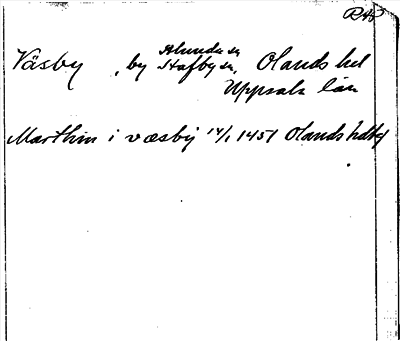 Väsby , by Alunda sn Olands hd
Stafby sn,
Uppsala län
Marthin i væsby 14/1 1451 Olands hdbg